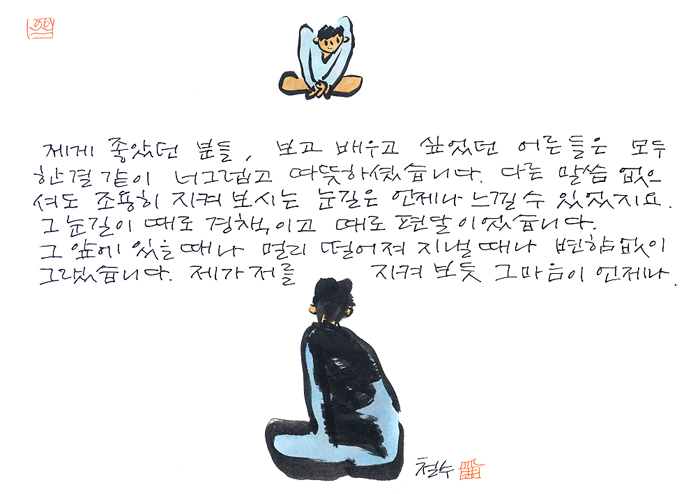 제게 좋았던 분들, 보고 배우고 싶었던 어른들은 모두
한결같이 너그럽고 따뜻하셨습니다. 다른 말씀 없으
셔도 조용히 지켜 보시는 눈길은 언제나 느낄 수 있었지요.
그 눈길이 때로 경책이고 때로 편달이었습니다.
그 앞에 있을 때나 멀리 떨어져 지낼 때나 변함없이
그랬습니다. 제가 저를 지켜 보듯 그마음이 언제나.
철수